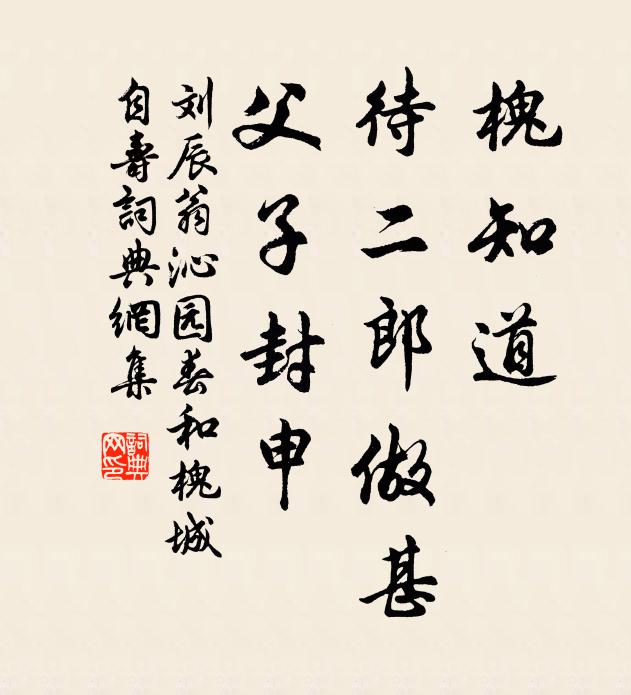 槐知道
待二郎做甚
父子封申
刘辰翁沁园春和槐城
自壽詞典網集
詞典
网印